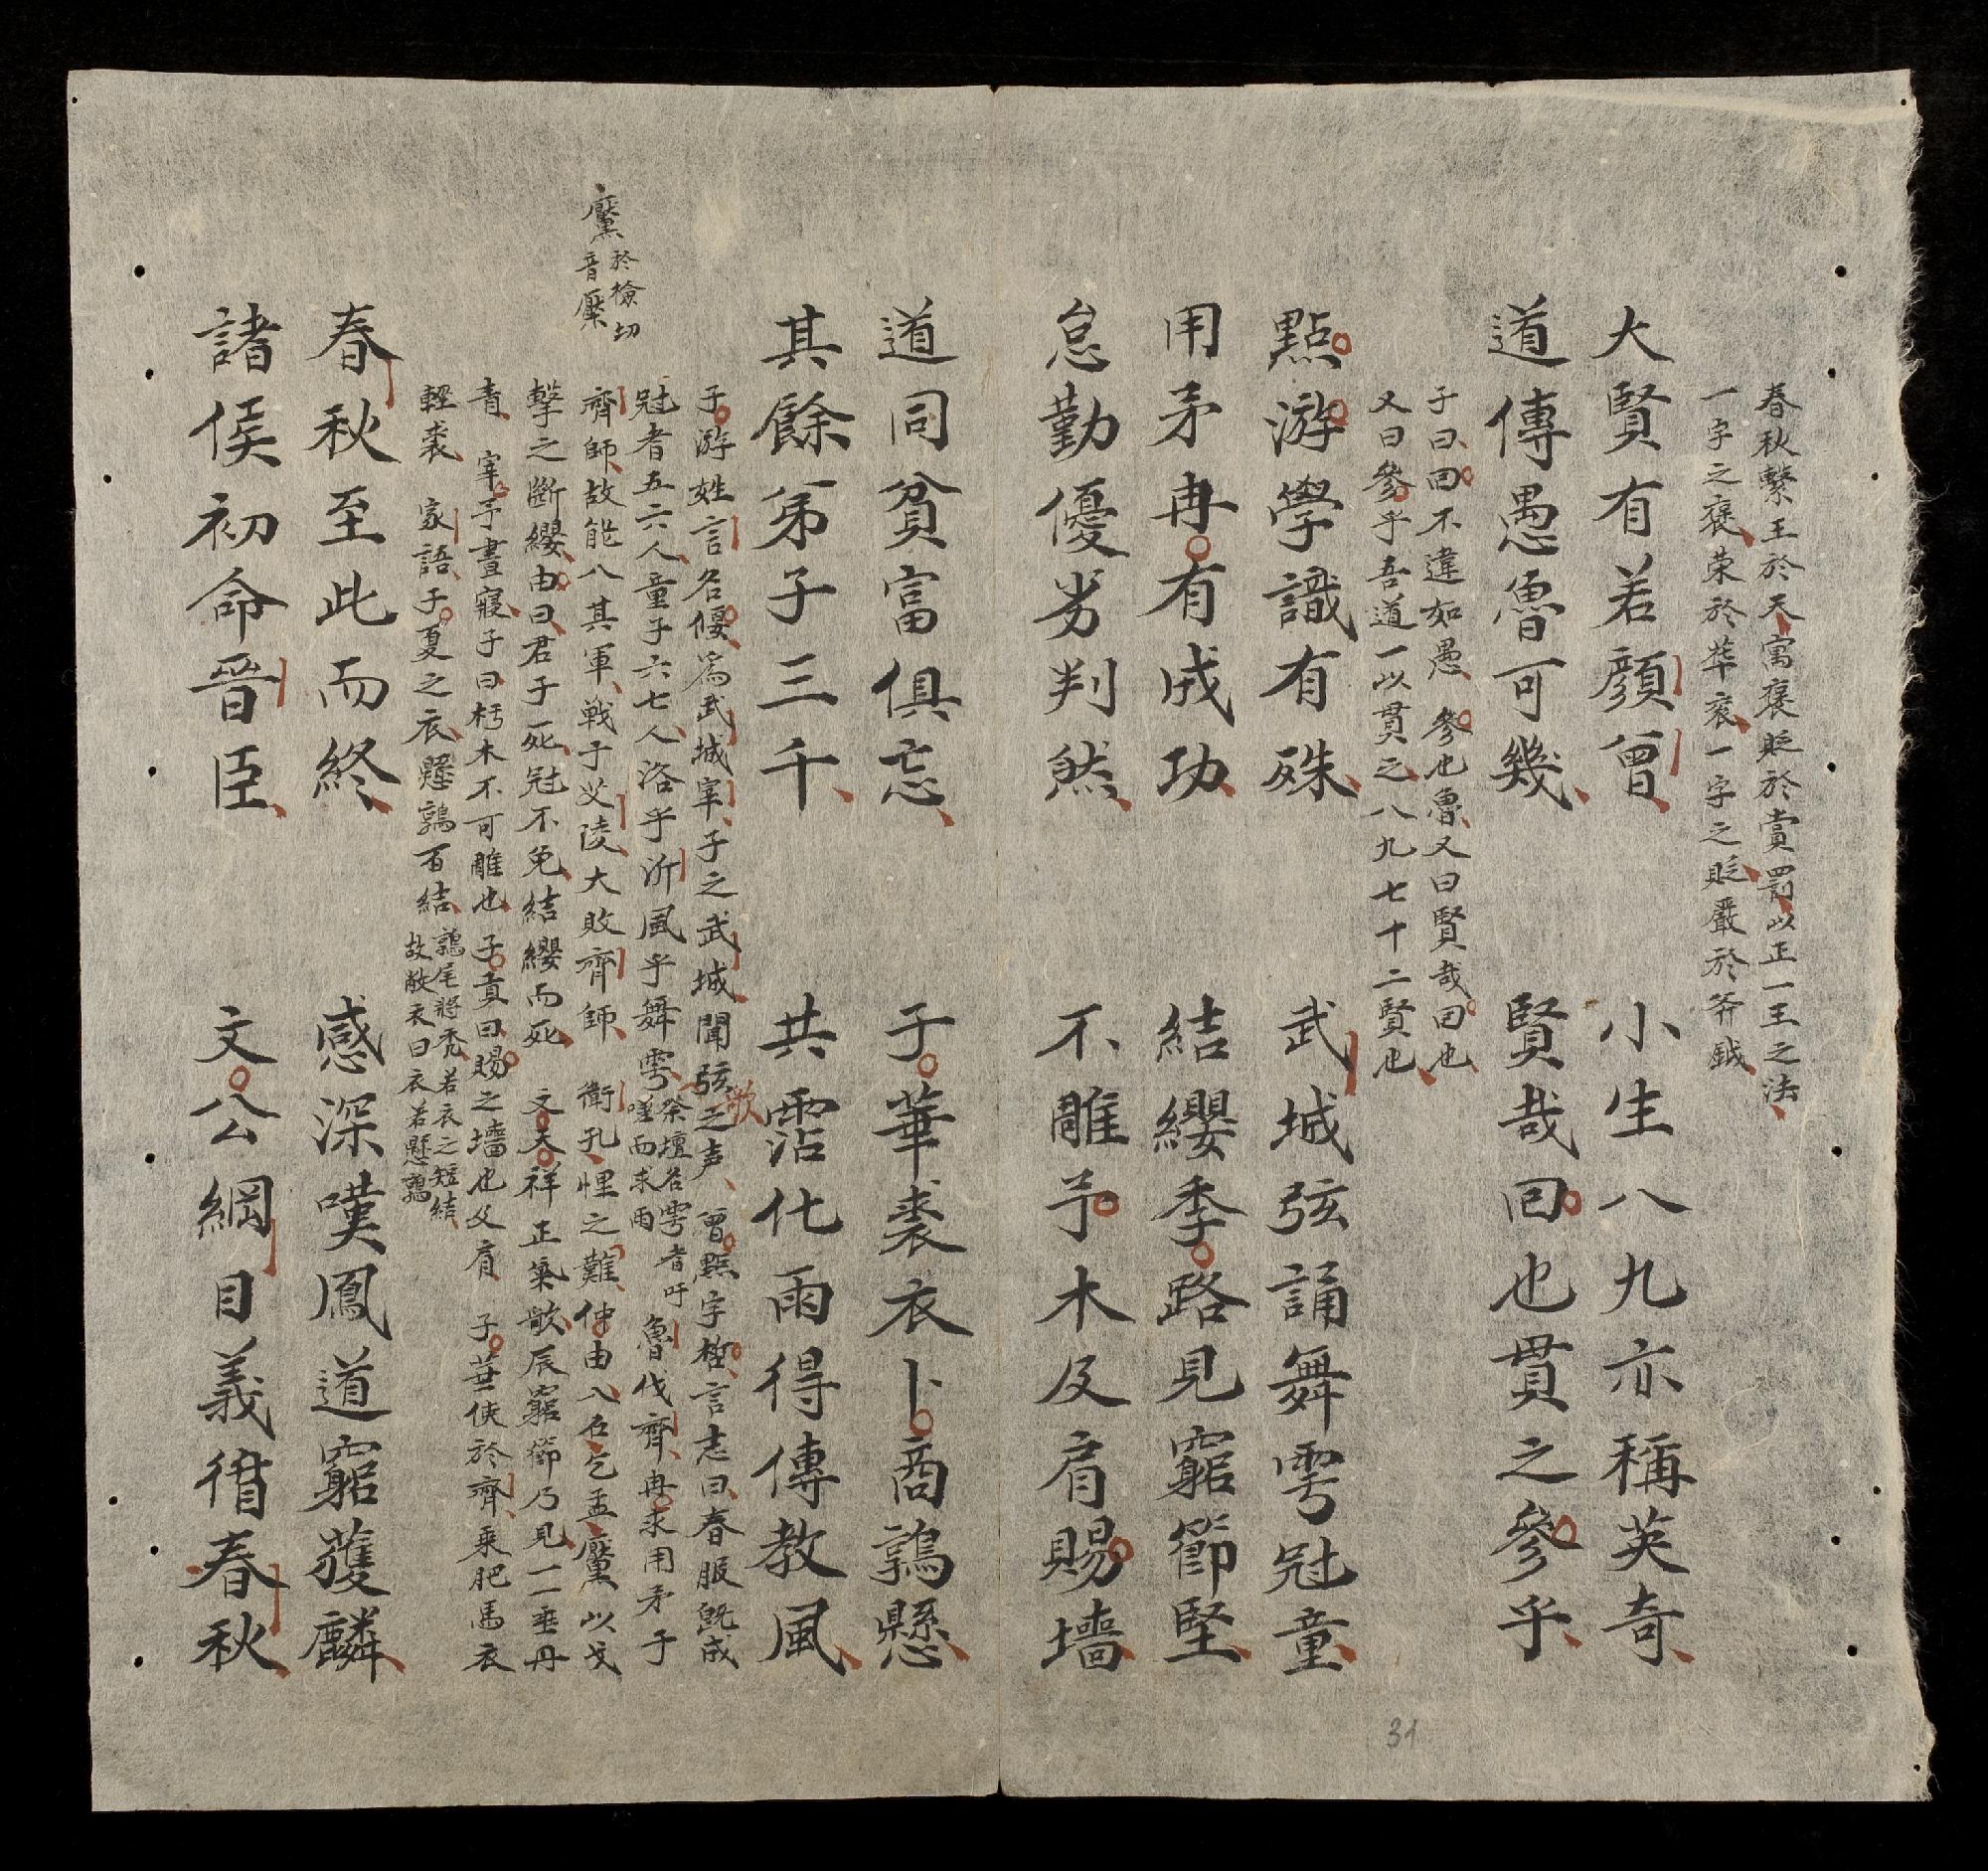 春秋繫王於天寓褒貶於賞罰以正一王之法
一字之褒荣於華衮一字之貶嚴於斧鉞
大賢有若顔曾 小生八九亦稱英奇
道傳愚魯可幾 賢哉回也貫之參乎
子曰回不違如愚 參也魯又曰賢哉回也
又曰參乎吾道一以貫之八九七十二賢也
點游學識有殊 武城弦誦舞雩冠童
用矛冉有成功 結纓季路見窮節堅
怠勤優劣判然 不雕予木及肩賜墻
道同貧富俱忘 子華裘衣卜商鶉懸
其餘弟子三千 共霑化雨得傳教風
子游姓言名偃爲武城宰子之武城聞弦歌之声 曾點字皙言志曰春服既成
冠者五六人童子六七人浴乎沂風乎舞雩 祭壇名雩者吁嗟而求雨 魯伐齊冉求用矛于
齊師故能入其軍戰于艾陵大敗齊師 衛孔悝之難仲由入石乞盂黶以戈
黶 於檢切 音壓
擊之斷纓由曰君子死冠不免結纓而死 文天祥正氣歌辰窮節乃見一一垂丹
青 宰予晝寢子曰朽木不可雕也 子貢曰賜之墻也父肩 子華使於齊乘肥馬衣
輕裘 家語子夏之衣懸鶉百結 鶉尾將秃若衣之短結故敝衣曰衣若懸鶉
春秋至此而終 感深嘆鳳道窮獲麟
諸侯初命晉臣 文公綱目義猶春秋
31